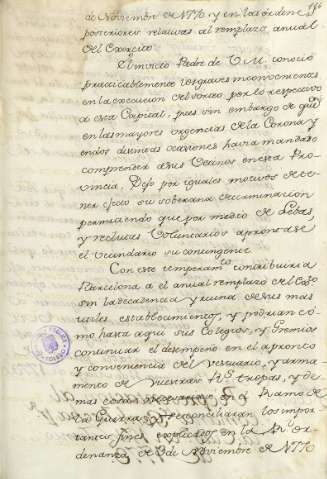 de Noviembre de 1770, y en las ordenes
posteriores relativas al remplazo anual
del Exercito
El invicto Padre de V. M. conoció
practicablemente los graves inconvenientes
en la execucion del sorteo por lo respectivo
a esta Capital, pues sin embargo de que
en las mayores urgencias de la Corona y
en dos distintas ocasiones havia mandado
comprender a sus vecinos en esta Pro-
vincia. Dejo por iguales motivos de te-
ner efecto su soberana determinacion
permitiendo que por medio de Levas,
y reclutas Voluntarios aprontase
el vecindario su contingente
Con este temperamto contribuiria
Barcelona a el anual remplazo del Exto
sin la decadencia y ruina de sus mas
utiles establecimientos, y podrian co-
mo hasta aqui sus Colegios, y Gremios
continuar el desempeño en el apronto
y conveniencia del vestuario, y arma-
mento de vuestras Rs tropas, y de-
mas cosas Ramo de
la Guerra, y se conciliarán los impor-
tantes fines explicados en la Rl or-
denanza de 3 de Noviembre de 1770